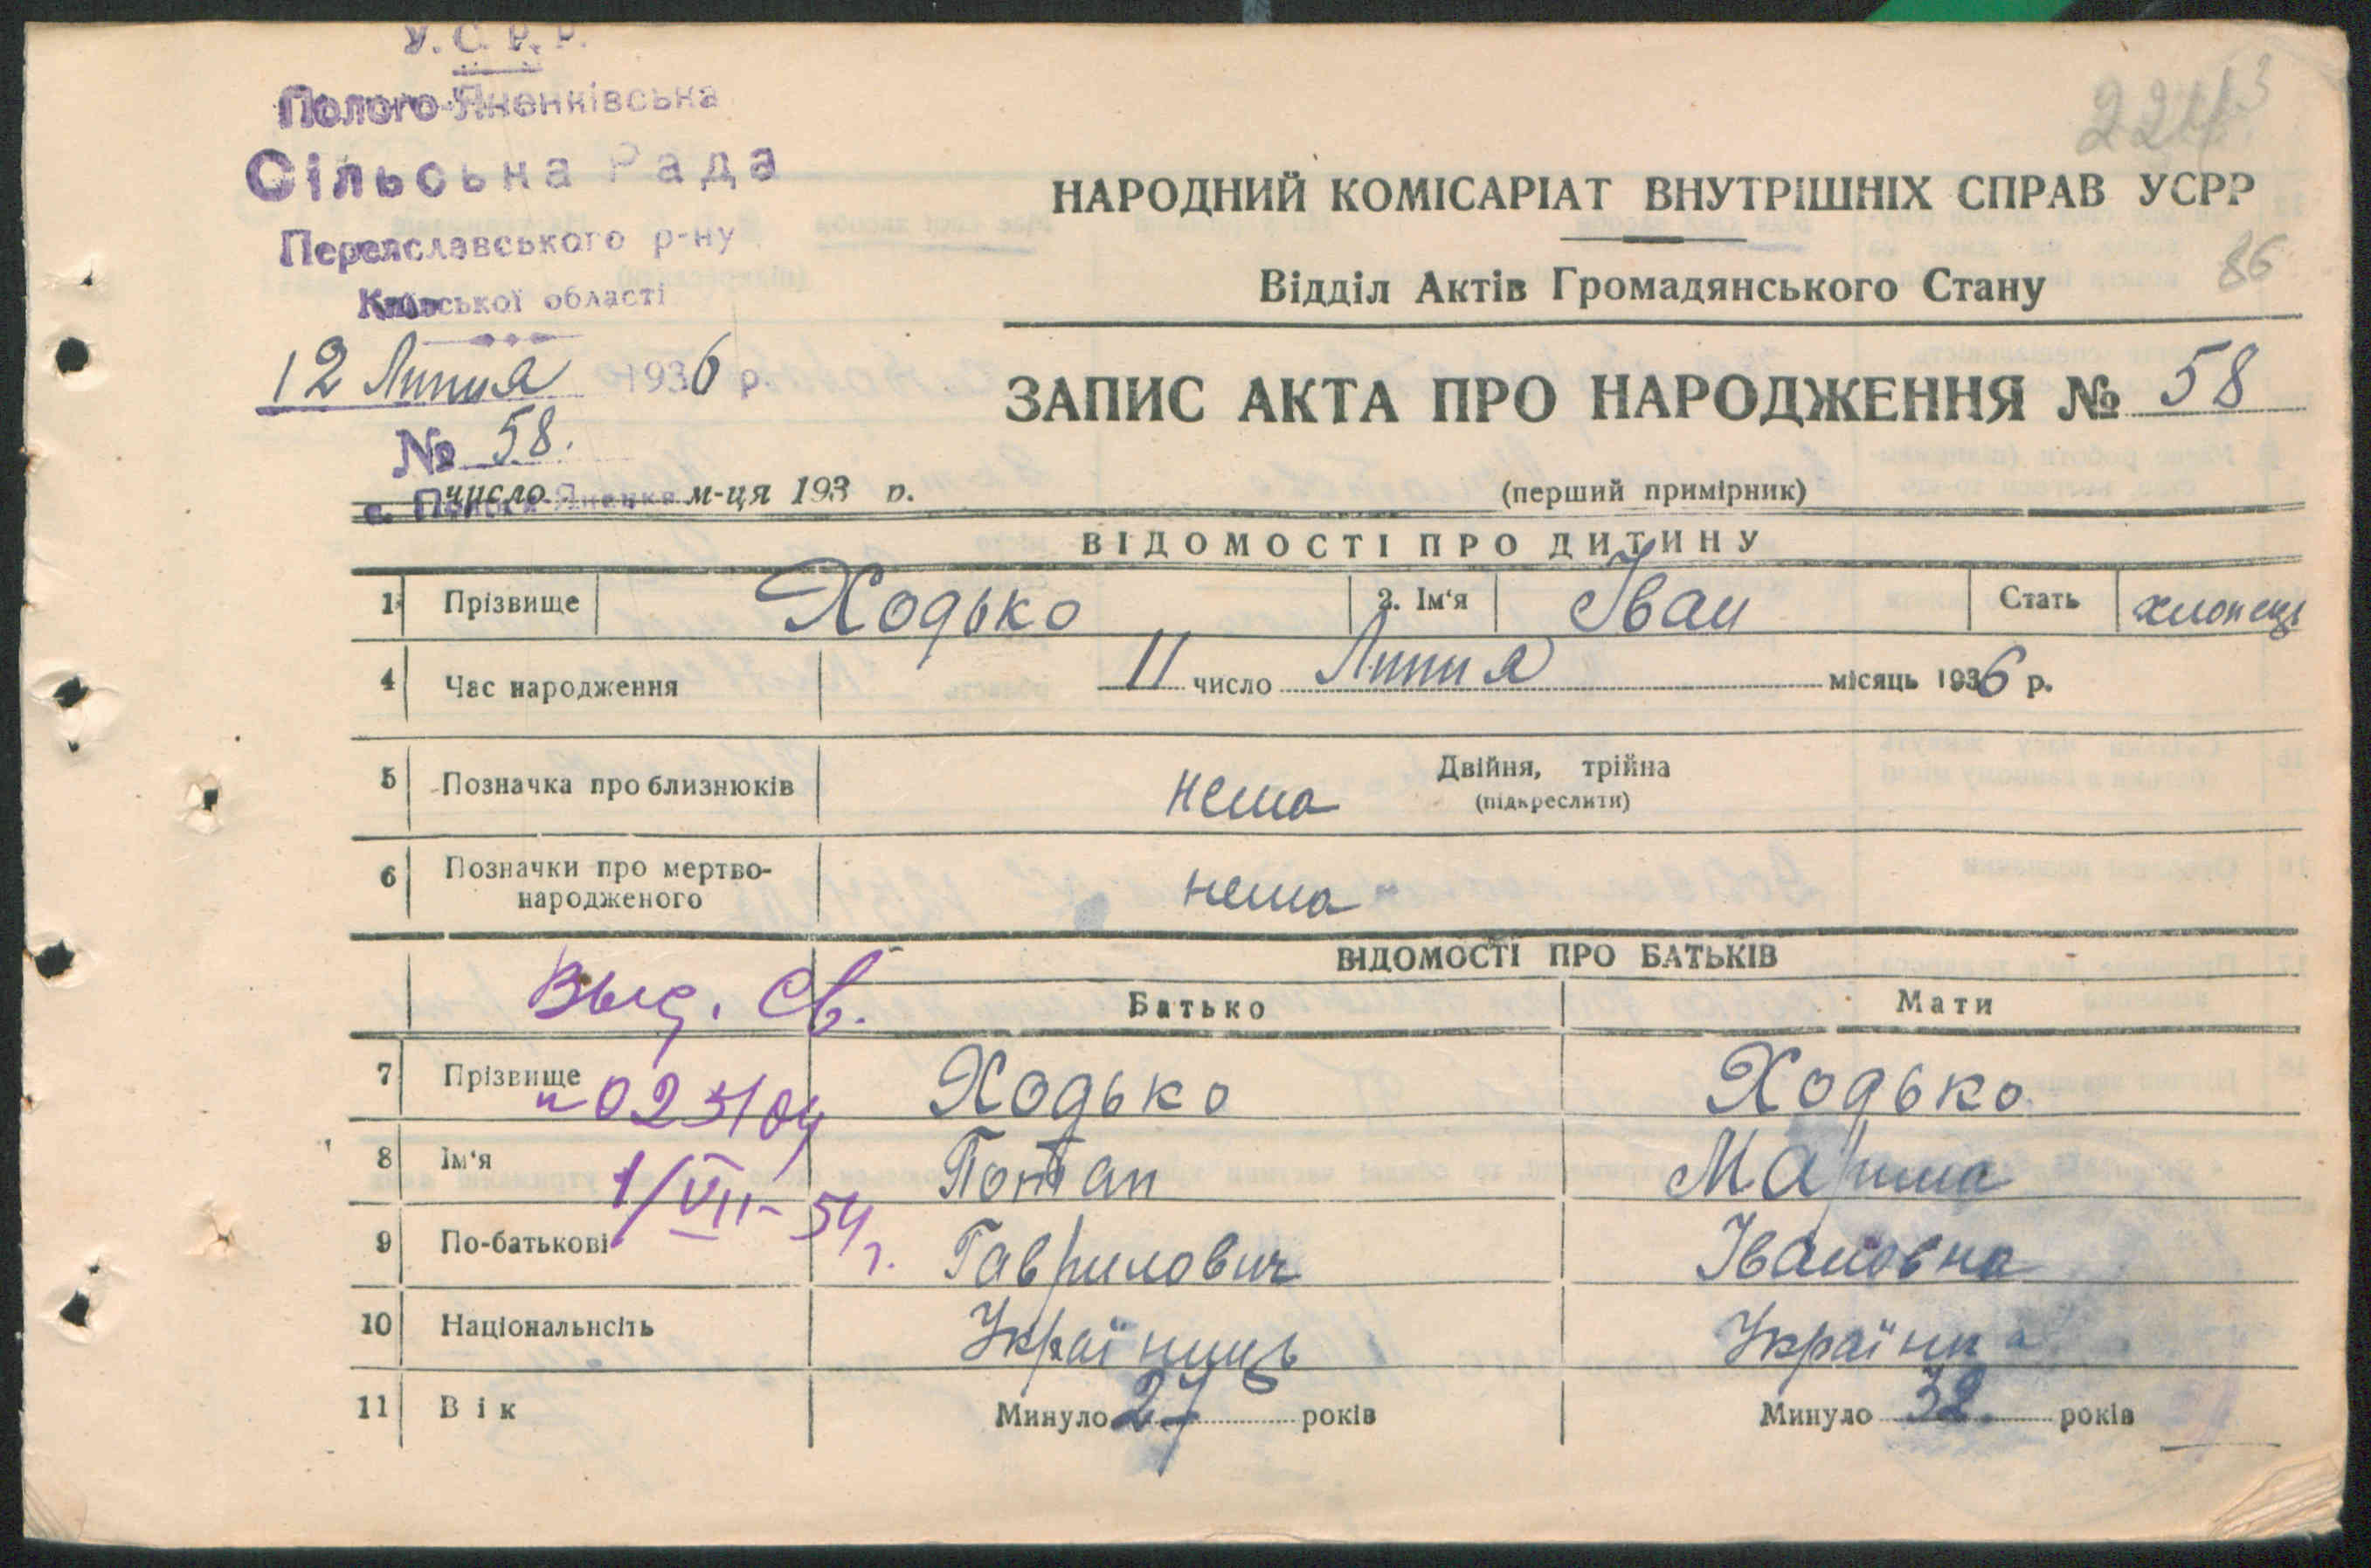 У. С. Р. Р.
Полого-Яненківська
Сільська Рада
Переяславського р-ну
Київської області
12 Липня 1936 р.
№ 58.
число м-ця 193 р.
с. Пологи-Яненки
224
13
86
НАРОДНИЙ КОМІСАРІАТ ВНУТРІШНІХ СПРАВ УСРР
Відділ Актів Громадянського Стану
ЗАПИС АКТА ПРО НАРОДЖЕННЯ № 58
(перший примірник)
ВІДОМОСТІ ПРО ДИТИНУ
1 Прізвище Ходько 2. Ім'я Іван Стать хлопець
4 Час народження 11 число Липня місяць 1936 р.
5 Позначка про близнюків нема Двійня, трійна
(підкреслити)
6 Позначки про мертво-
народженого нема
ВІДОМОСТІ ПРО БАТЬКІВ
Выд. св.
Батько Мати
7 Прізвище Ходько Ходько
8 Ім'я Потап Марина
1/VII-54 г.
9 По-батькові Гаврилович Івановна
10 Національнсіть Українець Українка
11 Вік Минуло 27 років Минуло 32. років